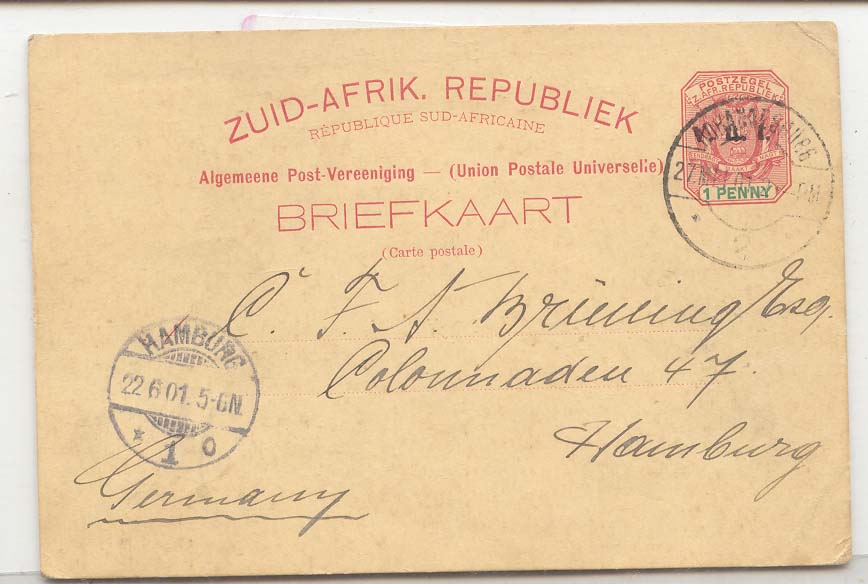 POSTZEGEL
Z. AFR. REPUBLIEK
1 PENNY
ZUID-AFRIK. REPUBLIEK
RÉPUBLIQUE SUD-AFRICAINE
Algemeene Post-Vereeniging — (Union Postale Universelle)
BRIEFKAART
(Carte postale)
2
C. F. A. Brüning Esq.
Colonnaden 47.
Hamburg
Germany
HAMBURG
22.6.01. 5-6N.
* 1 o